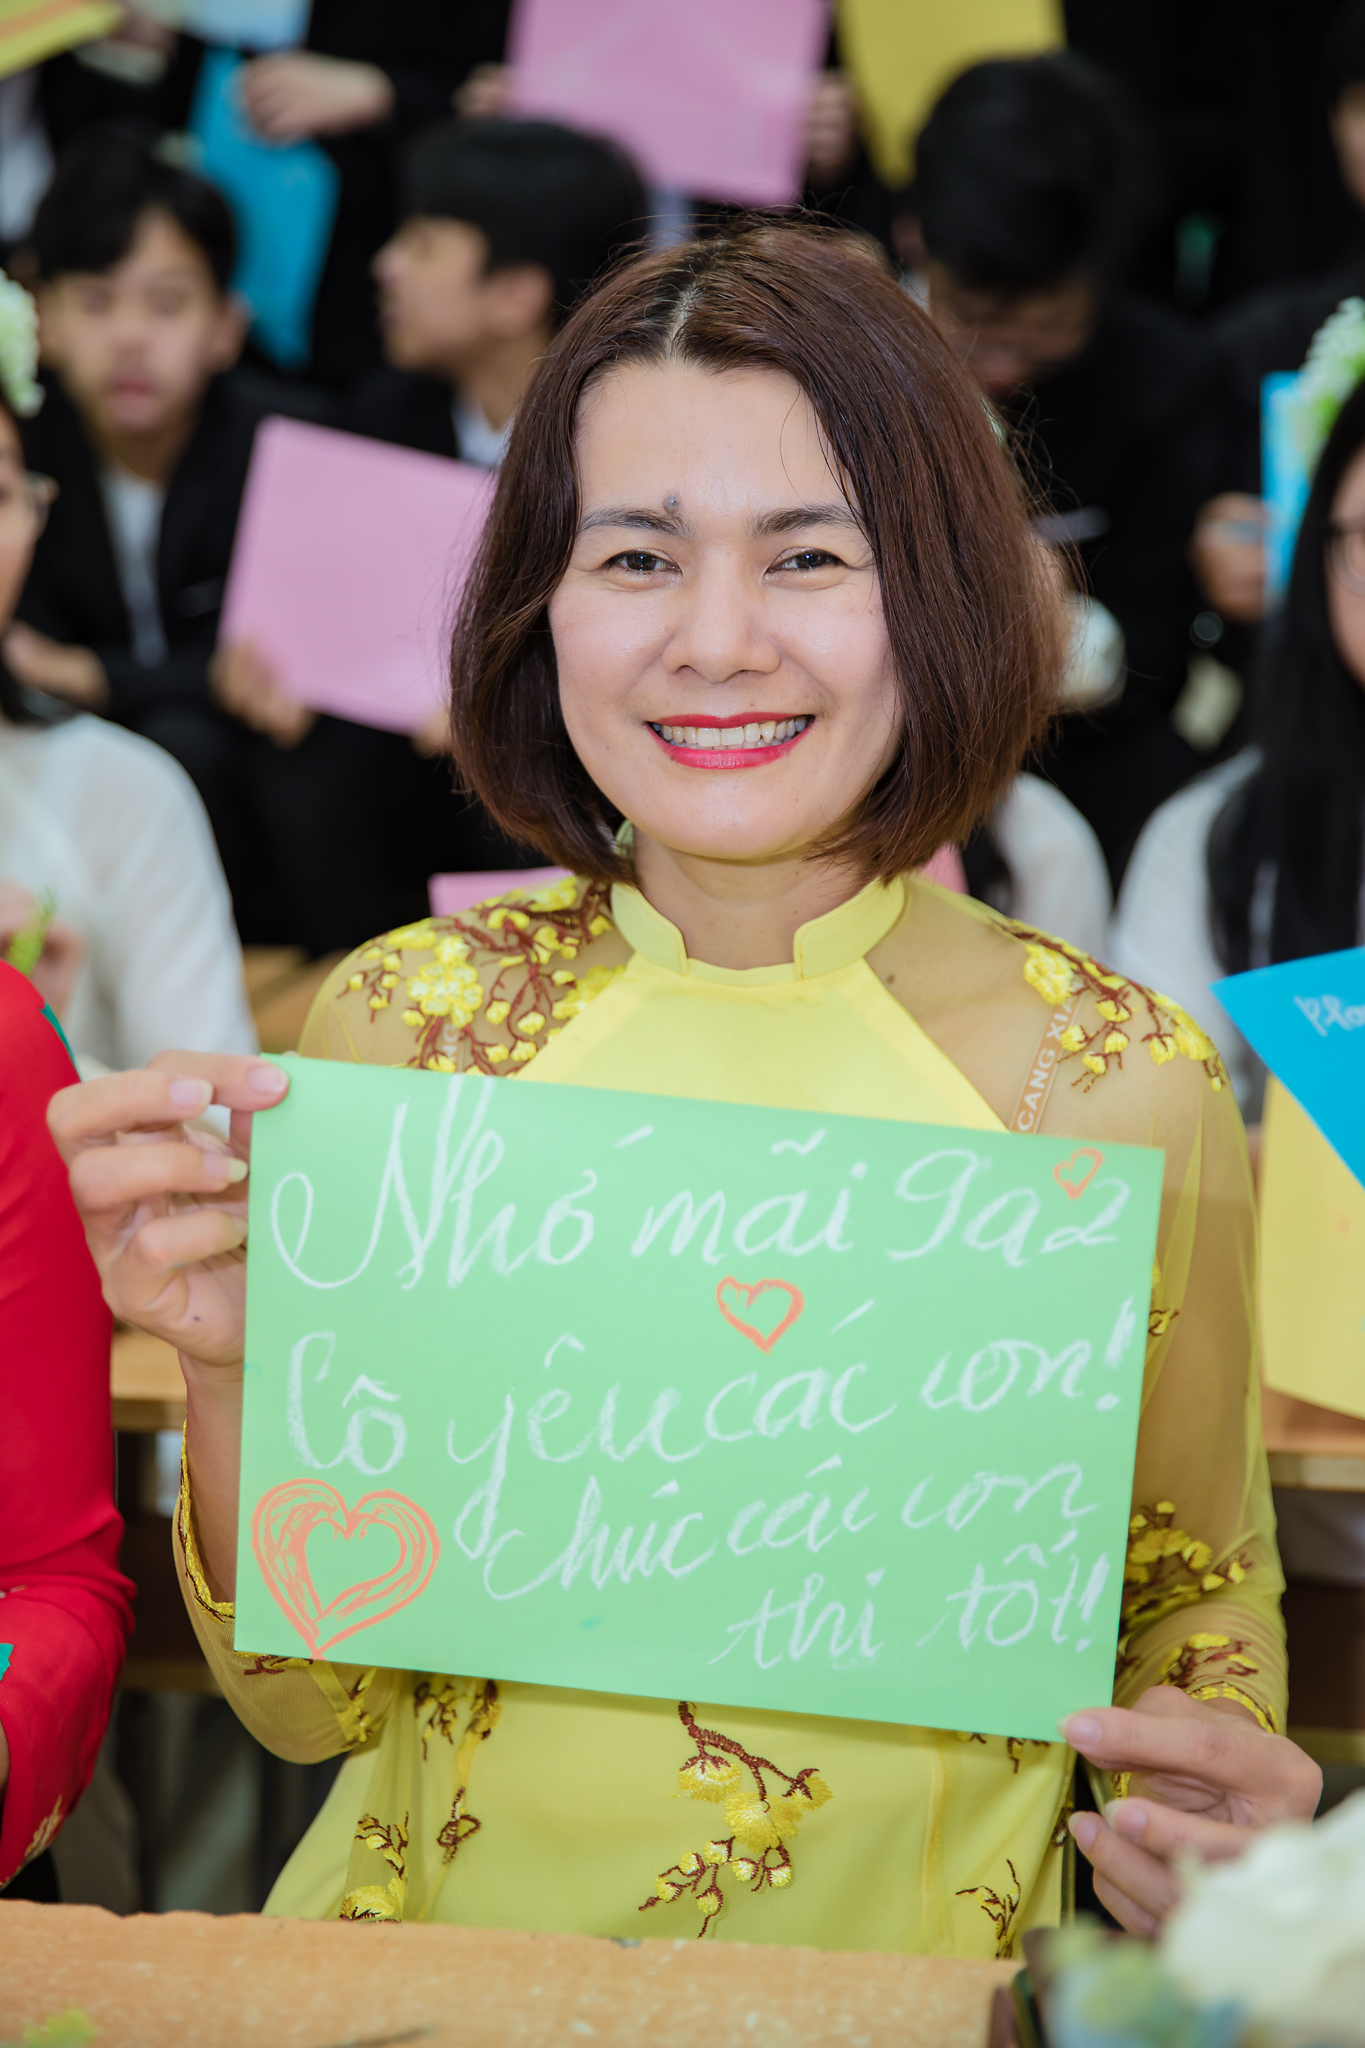 Nhớ mãi 9a2
Cô yêu các con!
Chúc các con
thi tốt!
CANG XIA